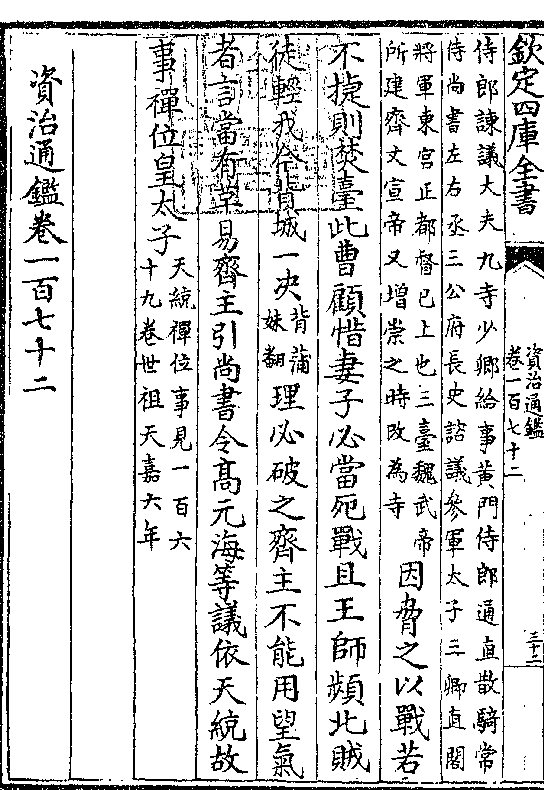 欽定四庫全書
資治通鑑
卷一百七十二
三十二
侍郎諫議大夫九寺少卿給事黃門侍郎通直散騎常
侍尚書左右丞三公府長史諮議參軍太子三卿直閤
將軍東宫正都督已上也三臺魏武帝
所建齊文宣帝又增崇之時改為寺
因脅之以戰若
不捷則焚臺此曹顧惜妻子必當死戰且王師頻北賊
徒輕我今背城一决
背蒲
妹翻
理必破之齊主不能用望氣
者言當有革易齊主引尚書令髙元海等議依天統故
事禪位皇太子
天統禪位事見一百六
十九卷世祖天嘉六年
資治通鑑卷一百七十二